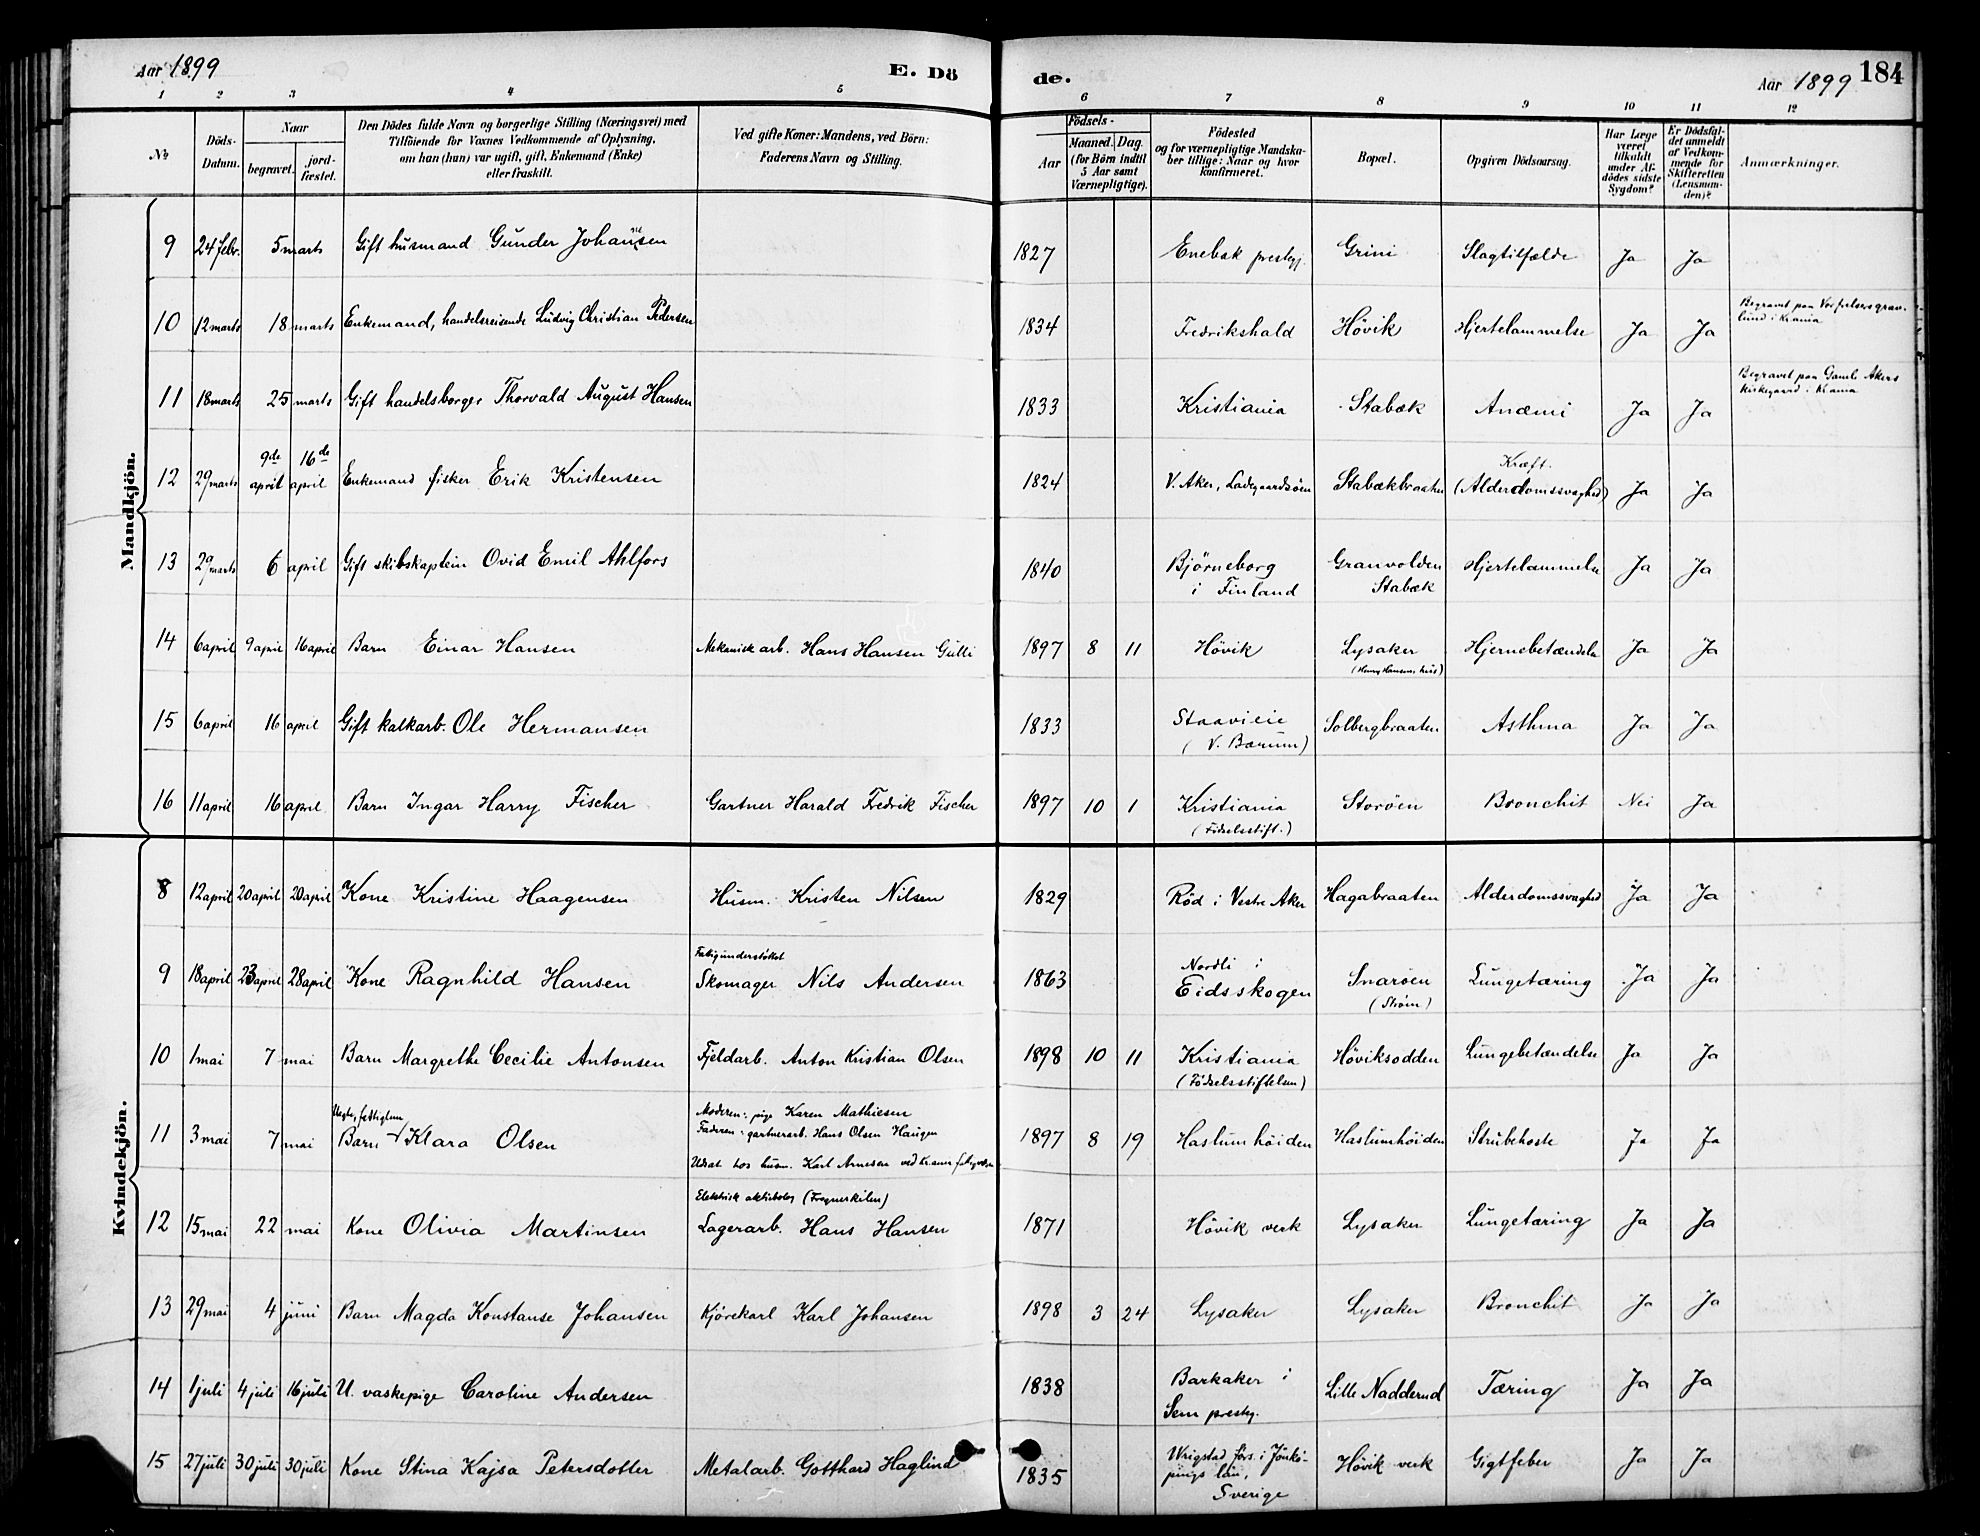 Aar 1899
E. Dö
de.
Aar 1899
184
1 2 3 4 5 6 7 8 9 10 11 12
№
Döds-Datum.
Naar
begravet.
jord-fæstet.
Den Dödes fulde Navn og borgerlige Stilling (Næringsvei) med
Tilföiende for Voxnes Vedkommende af Oplysning,
om han (hun) var ugift, gift, Enkemand (Enke)
eller fraskilt.
Ved gifte Koner: Mandens, ved Börn:
Faderens Navn og Stilling.
Födsels-
Aar
Maaned. Dag.
(for Börn indtil
5 Aar samt
Værnepligtige).
Födested
og for værnepligtige Mandska-
ber tillige: Naar og hvor
konfirmeret.
Bopæl.
Opgiven Dödsaarsag.
Har Læge
været
tilkaldt
under Af-
dödes sidste
Sygdom?
Er Dödsfal-
det anmeldt
af Vedkom-
mende for
Skifteretten
(Lensman-
den)?
Anmærkninger.
Mandkjön.
9 24 febr. 5 marts Gift husmand Gunder Johansen 1827 Enebak prestegj. Grini Slagtilfælde Ja Ja
10 12 marts 18 marts Enkemand, handelsreisende Ludvig Christian Pedersen 1834 Fredrikshald Hövik Hjertelammelse Ja Ja Begravet paa Vor frelsers grav-
lund i Krania
11 18 marts 25 marts Gift handelsborger Thorvald August Hansen 1833 Kristiania Stabæk Anæmi Ja Ja Begravet paa Gamle Akers
kirkegaard i Krania
12 29 marts 9de april 16de april Enkemand fisker Erik Kristensen 1824 V. Aker, Ladegaardsöen Stabækbraaten Kræft. (Alderdomssvaghed) Ja Ja
13 29 marts 6 april Gift skibskaptein Ovid Emil Ahlfors 1840 Björneborg
i Finland Granvolden
Stabæk Hjertelammelse Ja Ja
14 6 april 9 april 16 april Barn Einar Hansen Mekanisk arb. Hans Hansen Gulli 1897 8 11 Hövik Lysaker
(Henry Hansens hus) Hjernebetændelse Ja Ja
15 6 april 16 april Gift kalkarb. Ole Hermansen 1833 Staavieie
(V. Bærum) Solbergbraaten Asthma Ja Ja
16 11 april 16 april Barn Ingar Harry Fischer Gartner Harald Fredrik Fischer 1897 10 1 Kristiania
(Födselsstift.) Storöen Bronchit Nei Ja
Kvindekjön.
8 12 april 20 april 20 april Kone Kristine Haagensen Husm. Kristen Nilsen 1829 Röd i Vestre Aker Hagabraaten Alderdomssvaghed Ja Ja
9 18 april 23 april 28 april Kone Ragnhild Hansen Fattigunderstöttet
Skomager Nils Andersen 1863 Nordli i
Eidsskogen Snaröen
(Ström) Lungetæring Ja Ja
10 1 mai 7 mai Barn Margrethe Cecilie Antonsen Fjeldarb. Anton Kristian Olsen 1898 10 11 Kristiania
(Födselsstiftelsen) Höviksodden Lungebetændelse Ja Ja
11 3 mai 7 mai Uegte, fattiglem
Barn Klara Olsen Moderen: pige Karen Mathiesen
Faderen: gartnerarb. Hans Olsen Haugen
Udsat hos husm. Karl Arnesen ved Krania fattigvæsen 1897 8 19 Haslumhöiden Haslumhöiden Strubehoste Ja Ja
12 15 mai 22 mai Kone Olivia Martinsen Elektrisk aktiebolag (Frognerkilen)
Lagerarb. Hans Hansen 1871 Hövik verk Lysaker Lungetæring Ja Ja
13 29 mai 4 juni Barn Magda Konstanse Johansen Kjörekarl Karl Johansen 1898 3 24 Lysaker Lysaker Bronchit Ja Ja
14 1 juli 4 juli 16 juli U. vaskepige Caroline Andersen 1838 Barkaker i
Sem presteg. Lille Nadderud Tæring Ja Ja
15 27 juli 30 juli 30 juli Kone Stina Kajsa Petersdotter Metalarb. Gotthard Haglind 1835 Vrigstad förs. i Jönkö-
pings län,
Sverige Hövik verk Gigtfeber Ja Ja